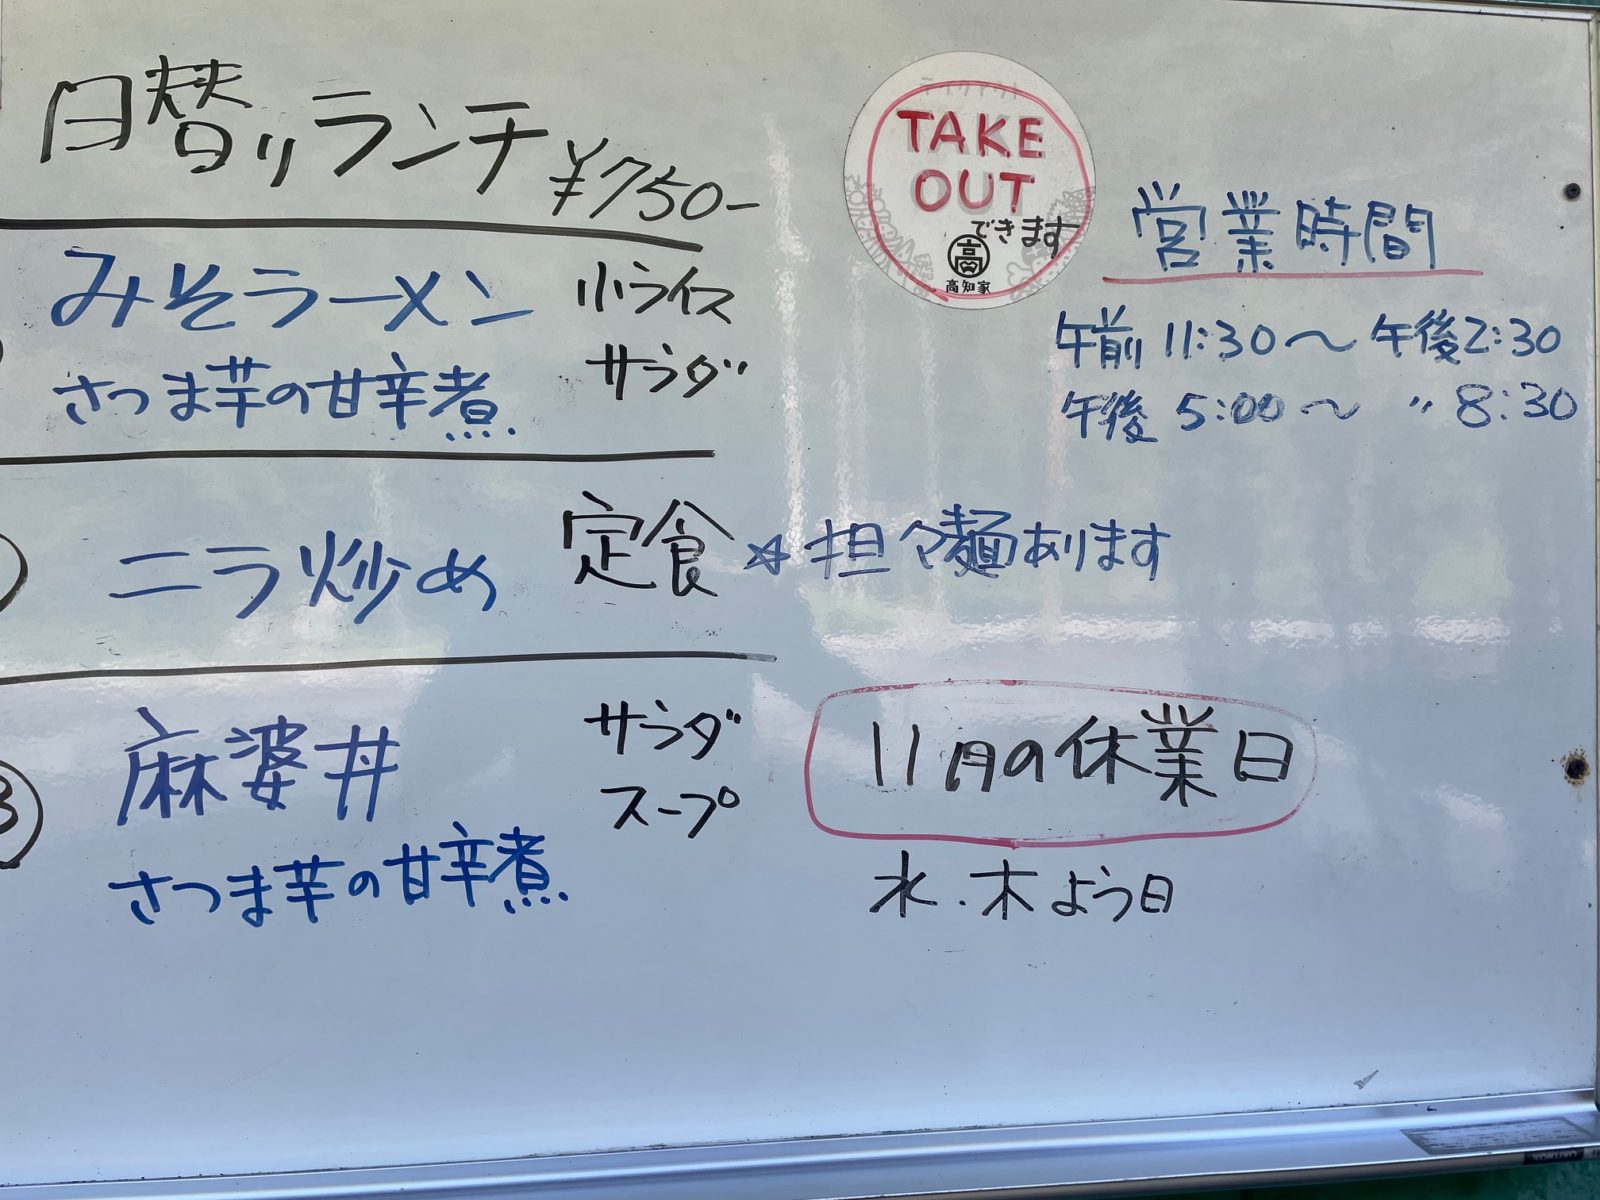 日替りランチ ¥750-
みそラーメン 小ライス
さつま芋の甘辛煮. サラダ
ニラ炒め 定食 ☆担々麺あります
③ 麻婆丼 サラダ
スープ
さつま芋の甘辛煮.
テイクアウト
TAKE
OUT
できます
高
高知家
営業時間
午前 11:30〜午後2:30
午後 5:00〜 〃 8:30
11月の休業日
水.木よう日